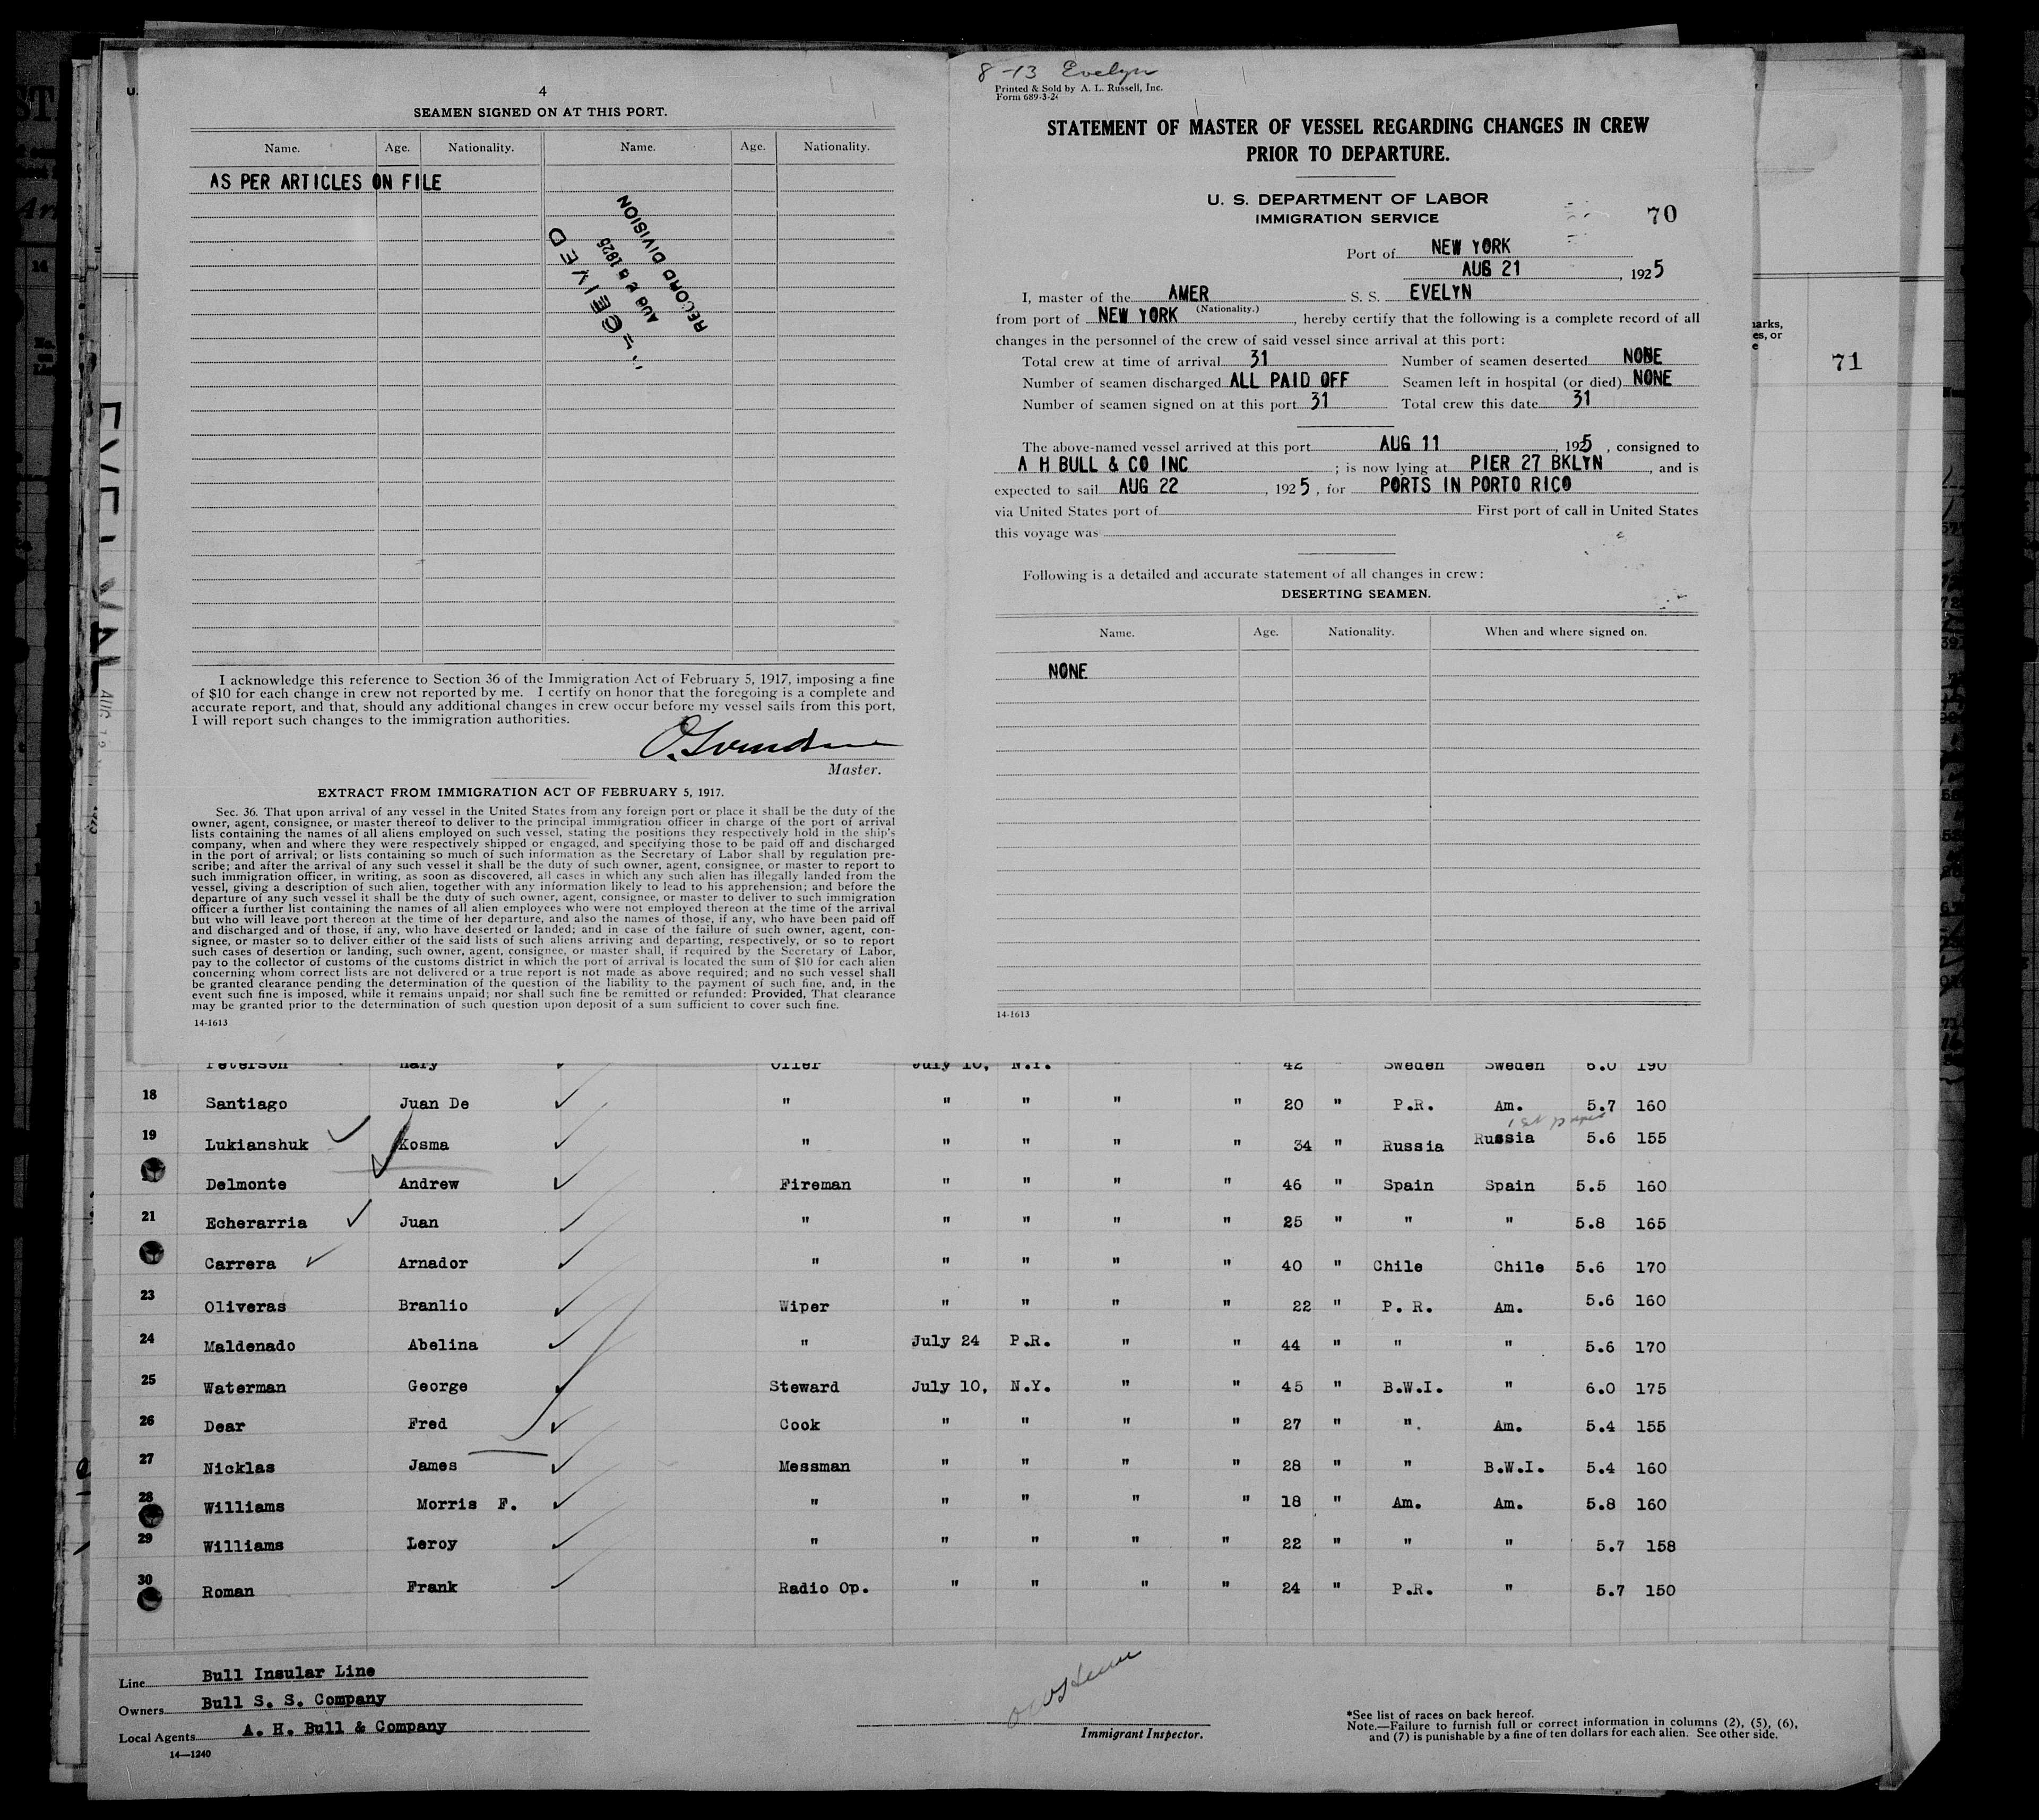 4
SEAMEN SIGNED ON AT THIS PORT.
Name. Age. Nationality. Name. Age. Nationality.
AS PER ARTICLES ON FILE
RECEIVED
AUG 26 1925
RECORD DIVISION
I acknowledge this reference to Section 36 of the Immigration Act of February 5, 1917, imposing a fine
of $10 for each change in crew not reported by me. I certify on honor that the foregoing is a complete and
accurate report, and that, should any additional changes in crew occur before my vessel sails from this port,
I will report such changes to the immigration authorities.
Master.
EXTRACT FROM IMMIGRATION ACT OF FEBRUARY 5, 1917.
Sec. 36. That upon arrival of any vessel in the United States from any foreign port or place it shall be the duty of the
owner, agent, consignee, or master thereof to deliver to the principal immigration officer in charge of the port of arrival
lists containing the names of all aliens employed on such vessel, stating the positions they respectively hold in the ship's
company, when and where they were respectively shipped or engaged, and specifying those to be paid off and discharged
in the port of arrival; or lists containing so much of such information as the Secretary of Labor shall by regulation pre-
scribe; and after the arrival of any such vessel it shall be the duty of such owner, agent, consignee, or master to report to
such immigration officer, in writing, as soon as discovered, all cases in which any such alien has illegally landed from the
vessel, giving a description of such alien, together with any information likely to lead to his apprehension; and before the
departure of any such vessel it shall be the duty of such owner, agent, consignee, or master to deliver to such immigration
officer a further list containing the names of all alien employees who were not employed thereon at the time of the arrival
but who will leave port thereon at the time of her departure, and also the names of those, if any, who have been paid off
and discharged and of those, if any, who have deserted or landed; and in case of the failure of such owner, agent, con-
signee, or master so to deliver either of the said lists of such aliens arriving and departing, respectively, or so to report
such cases of desertion or landing, such owner, agent, consignee, or master shall, if required by the Secretary of Labor,
pay to the collector of customs of the customs district in which the port of arrival is located the sum of $10 for each alien
concerning whom correct lists are not delivered or a true report is not made as above required; and no such vessel shall
be granted clearance pending the determination of the question of the liability to the payment of such fine, and, in the
event such fine is imposed, while it remains unpaid; nor shall such fine be remitted or refunded: Provided, That clearance
may be granted prior to the determination of such question upon deposit of a sum sufficient to cover such fine.
14-1613
8-13 Evelyn
Printed & Sold by A. L. Russell, Inc.
Form 689-3-24
STATEMENT OF MASTER OF VESSEL REGARDING CHANGES IN CREW
PRIOR TO DEPARTURE.
U. S. DEPARTMENT OF LABOR
IMMIGRATION SERVICE
70
Port of NEW YORK
AUG 21, 1925
I, master of the AMER S. S. EVELYN
(Nationality.)
from port of NEW YORK, hereby certify that the following is a complete record of all
changes in the personnel of the crew of said vessel since arrival at this port:
Total crew at time of arrival 31 Number of seamen deserted NONE
Number of seamen discharged ALL PAID OFF Seamen left in hospital (or died) NONE
Number of seamen signed on at this port 31 Total crew this date 31
The above-named vessel arrived at this port AUG 11, 1925, consigned to
A H BULL & CO INC; is now lying at PIER 27 BKLYN, and is
expected to sail AUG 22, 1925, for PORTS IN PORTO RICO
via United States port of First port of call in United States
this voyage was
Following is a detailed and accurate statement of all changes in crew:
DESERTING SEAMEN.
Name. Age. Nationality. When and where signed on.
NONE
14-1613
71
Peterson Hary Oiler July 10, N.Y. " " 42 " Sweden Sweden 6.0 190
18 Santiago Juan De " " " " " 20 " P.R. Am. 5.7 160
1st papers
19 Lukianshuk Kosma " " " " " 34 " Russia Russia 5.6 155
Delmonte Andrew Fireman " " " " 46 " Spain Spain 5.5 160
21 Echerarria Juan " " " " " 25 " " " 5.8 165
Carrera Arnador " " " " " 40 " Chile Chile 5.6 170
23 Oliveras Branlio Wiper " " " " 22 " P. R. Am. 5.6 160
24 Maldenado Abelina " July 24 P.R. " " 44 " " " 5.6 170
25 Waterman George Steward July 10, N.Y. " " 45 " B.W.I. " 6.0 175
26 Dear Fred Cook " " " " 27 " ". Am. 5.4 155
27 Nicklas James Messman " " " " 28 " " B.W.I. 5.4 160
28 Williams Morris F. " " " " " 18 " Am. Am. 5.8 160
29 Williams Leroy " " " " " 22 " " " 5.7 158
30 Roman Frank Radio Op. " " " " 24 " P.R. " 5.7 150
Line Bull Insular Line
Owners Bull S. S. Company
Local Agents A. H. Bull & Company
14—1240
Immigrant Inspector.
*See list of races on back hereof.
Note.—Failure to furnish full or correct information in columns (2), (5), (6),
and (7) is punishable by a fine of ten dollars for each alien. See other side.